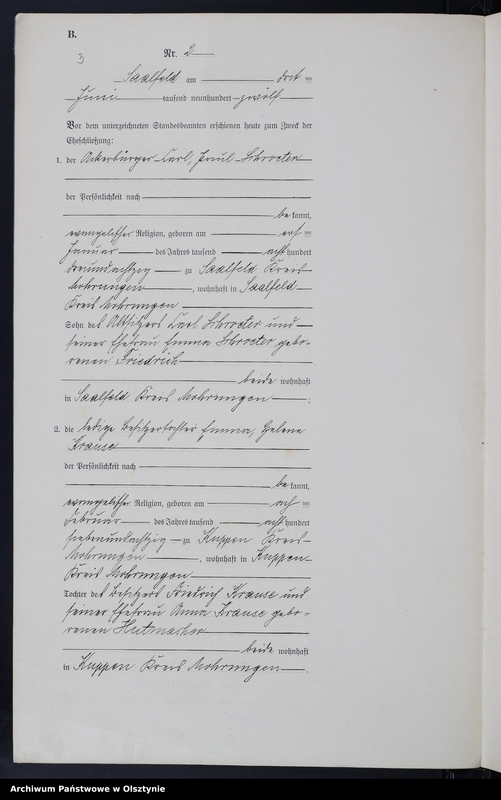 B.
3
Nr. 2
Saalfeld am drei ten
Juni tausend neunhundert zwölf
Vor dem unterzeichneten Standesbeamten erschienen heute zum Zweck der
Eheschließung:
1. der Ackerbürger Carl, Paul Schroeter
der Persönlichkeit nach
be kannt,
evangelischer Religion, geboren am ersten
Januar des Jahres tausend acht hundert
dreiundachtzig zu Saalfeld Kreis
Mohrungen, wohnhaft in Saalfeld
Kreis Mohrungen
Sohn des Altsitzers Carl Schroeter und
seiner Ehefrau Emma Schroeter gebo-
renen Friedrich
beide wohnhaft
in Saalfeld Kreis Mohrungen ;
2. die ledige Besitzertochter Emma, Helene
Krause
der Persönlichkeit nach
be kannt,
evangelischer Religion, geboren am ten
Februar des Jahres tausend acht hundert
siebenundachtzig zu Kuppen Kreis
Mohrungen, wohnhaft in Kuppen
Kreis Mohrungen
Tochter des Besitzers Friedrich Krause und
seiner Ehefrau Anna Krause gebo=
renen Hutmacher
beide wohnhaft
in Kuppen Kreis Mohrungen .
Archiwum Państwowe w Olsztynie